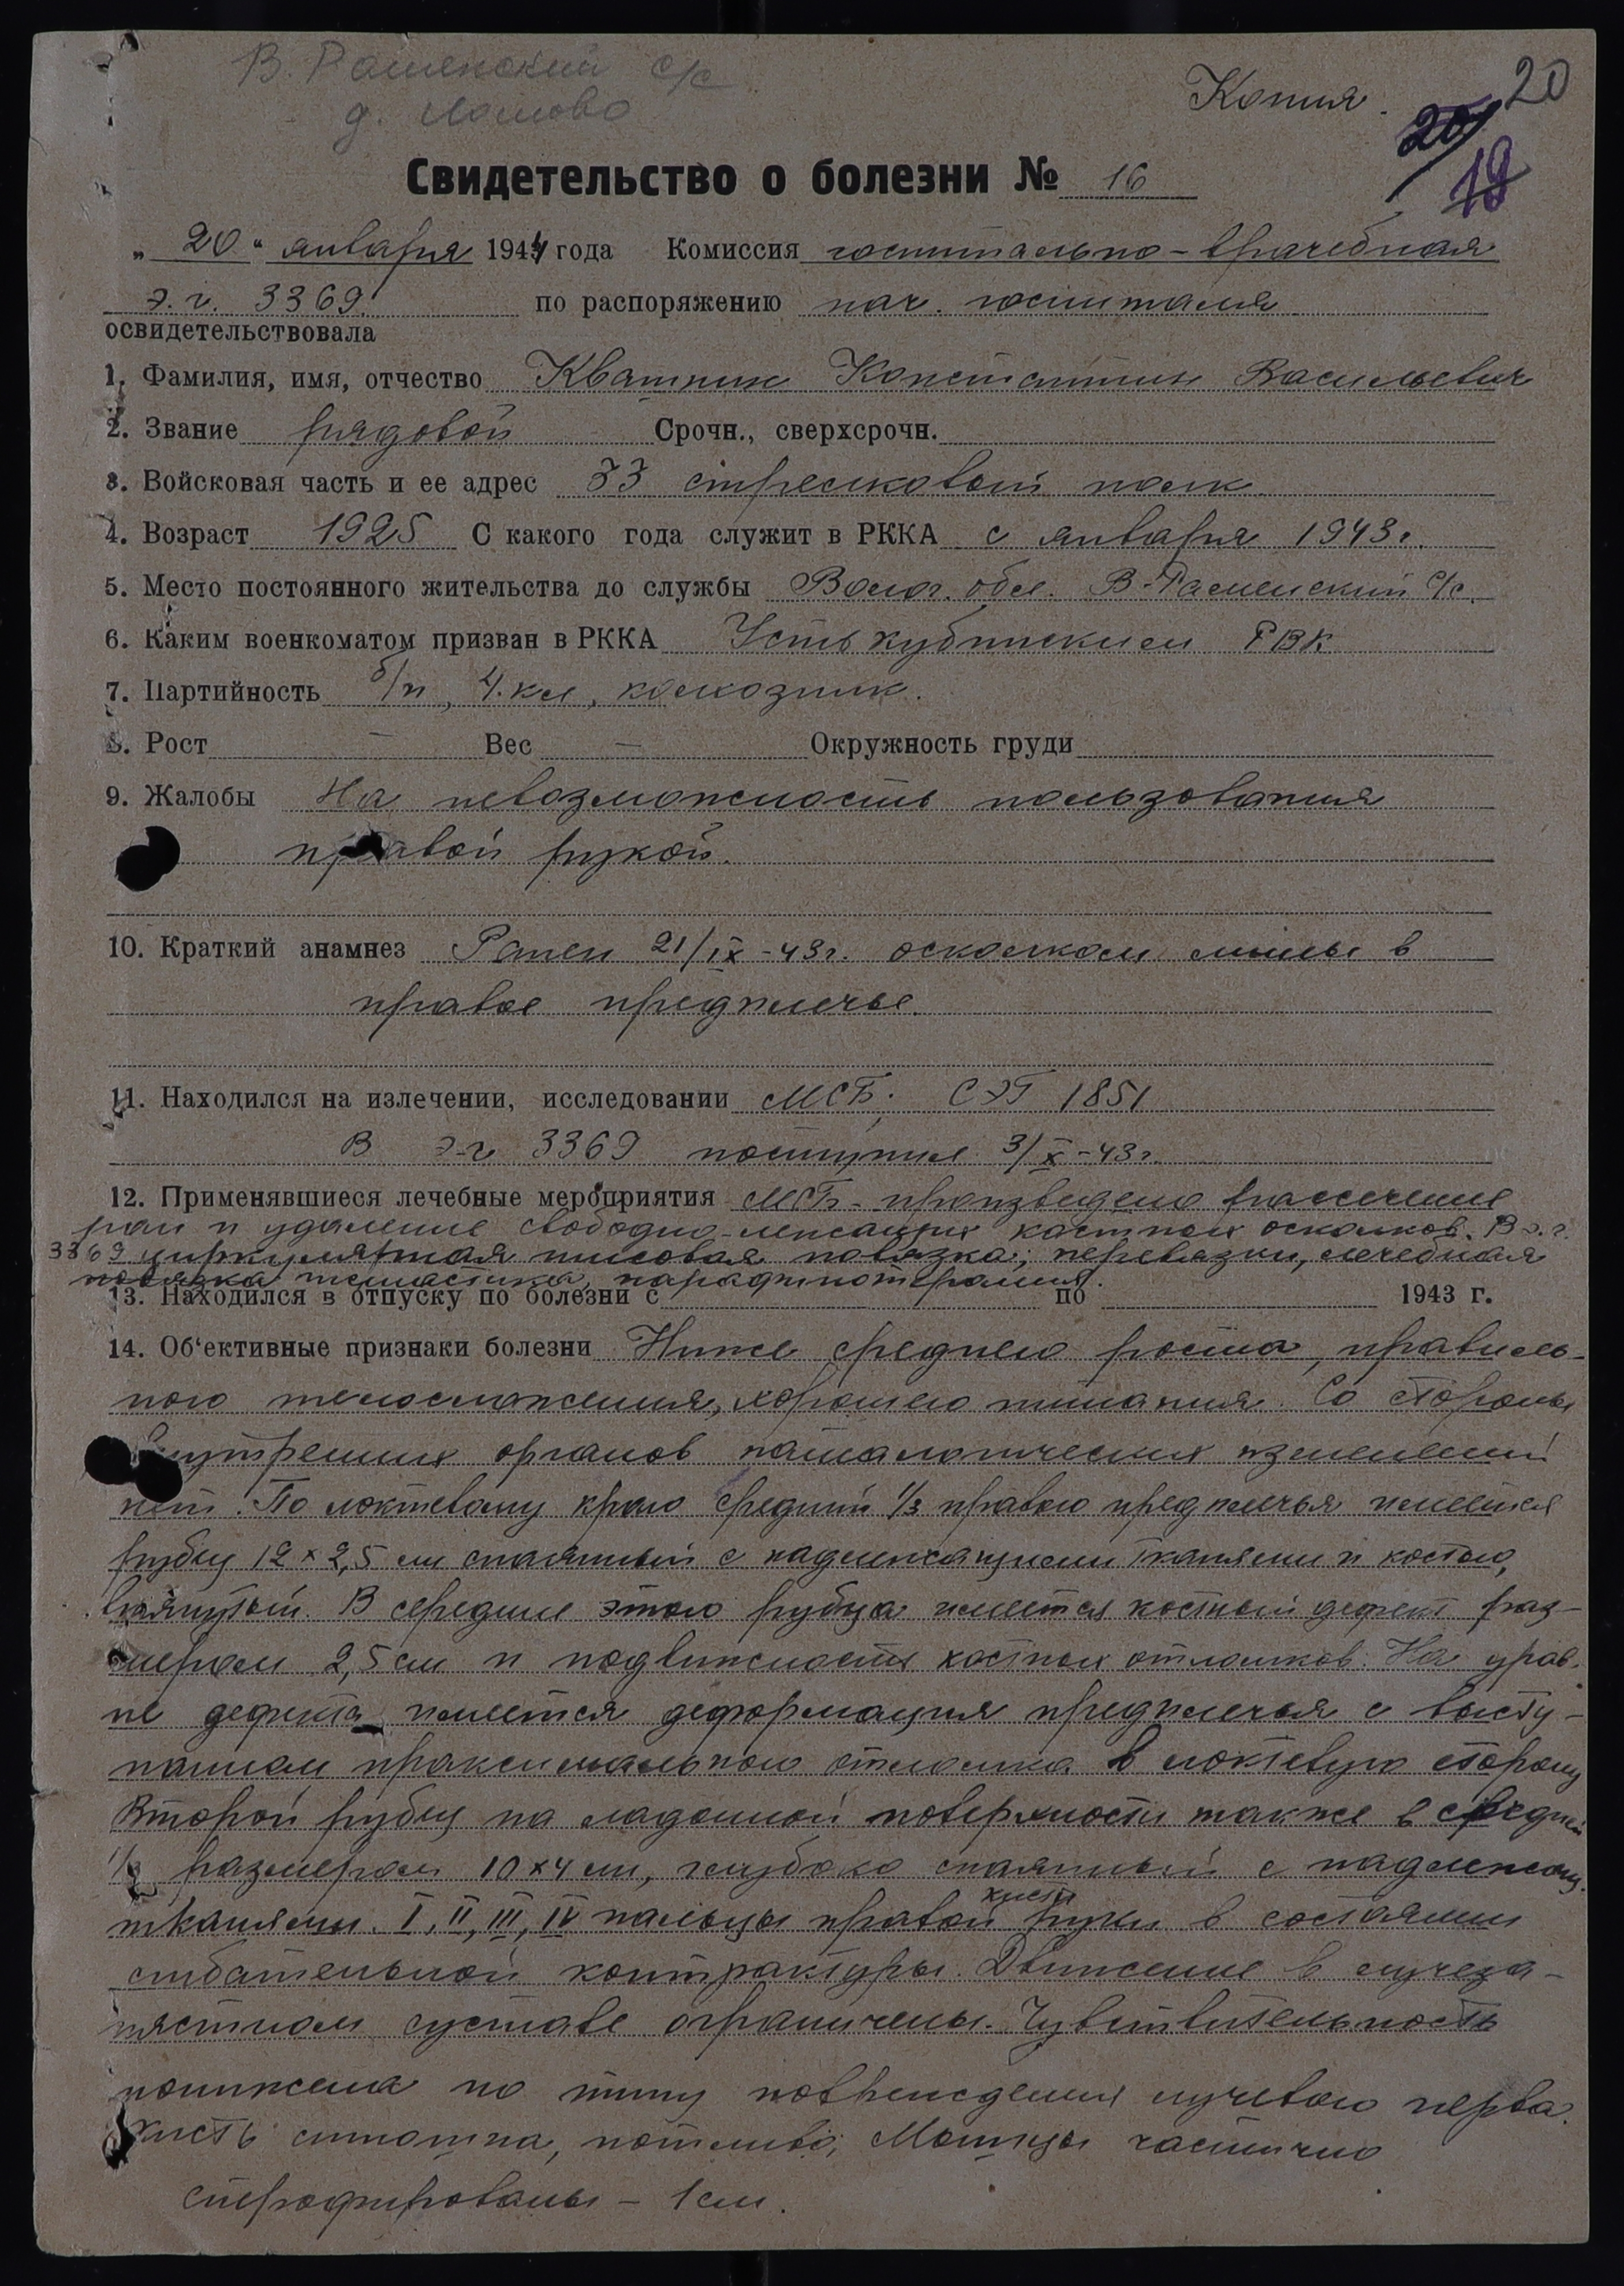 В. Раменский с/с
д. Лотово
Копия.
20
20
19
Свидетельство о болезни № 16
„20“ января 1944 года Комиссия госпитально-врачебная
э.г. 3369. по распоряжению нач. госпиталя
освидетельствовала
1. Фамилия, имя, отчество Кватнин Константин Васильевич
2. Звание рядовой Срочн., сверхсрочн.
3. Войсковая часть и ее адрес 33 стрелковый полк
4. Возраст 1925 С какого года служит в РККА с января 1943г.
5. Место постоянного жительства до службы Волог. обл. В-Раменский с/с.
6. Каким военкоматом призван в РККА Усть кубинским РВК
7. Партийность б/п, 4.кл, колхозник.
8. Рост — Вес — Окружность груди
9. Жалобы На невозможность пользования
правой рукой.
10. Краткий анамнез Ранен 21/IX-43г. осколком мины в
правое предплечье.
11. Находился на излечении, исследовании МСБ; СЭГ 1851
В э-г 3369 поступил 3/X-43г.
12. Применявшиеся лечебные мероприятия МСБ- произведено рассечение
ран и удаление свободно-лежащих костных осколков. В э.г.
3369 циркулярная гипсовая повязка; перевязки, лечебная
повязка гимнастика, парафинотерапия.
13. Находился в отпуску по болезни с по 1943 г.
14. Об‘ективные признаки болезни Ниже среднего роста, правиль-
ного телосложения, хорошего питания. Со стороны
внутренних органов патологических изменений
нет. По локтевому краю средний 1/3 правого предплечья имеется
рубец 12×2,5 см спаянный с надлежащими тканями и костью,
втянутый. В середине этого рубца имеется костный дефект раз-
мером 2,5 см и подвижность костных отломков. На уров-
не дефекта имеется деформация предплечья с высту-
панием проксимального отломка в локтевую сторону
Второй рубец на ладонной поверхности также в средней
1/3 размером 10×4 см, глубоко спаянный с надлежащ.
тканями. I, II, III, IV пальцы правой кисти руки в состоянии
сгибательной контрактуры. Движение в лучеза-
пястном суставе ограничены. Чувствительность
понижена по типу повреждения лучевого нерва.
Кисть синюшна, потлива; Мышцы частично
атрофированы - 1см.